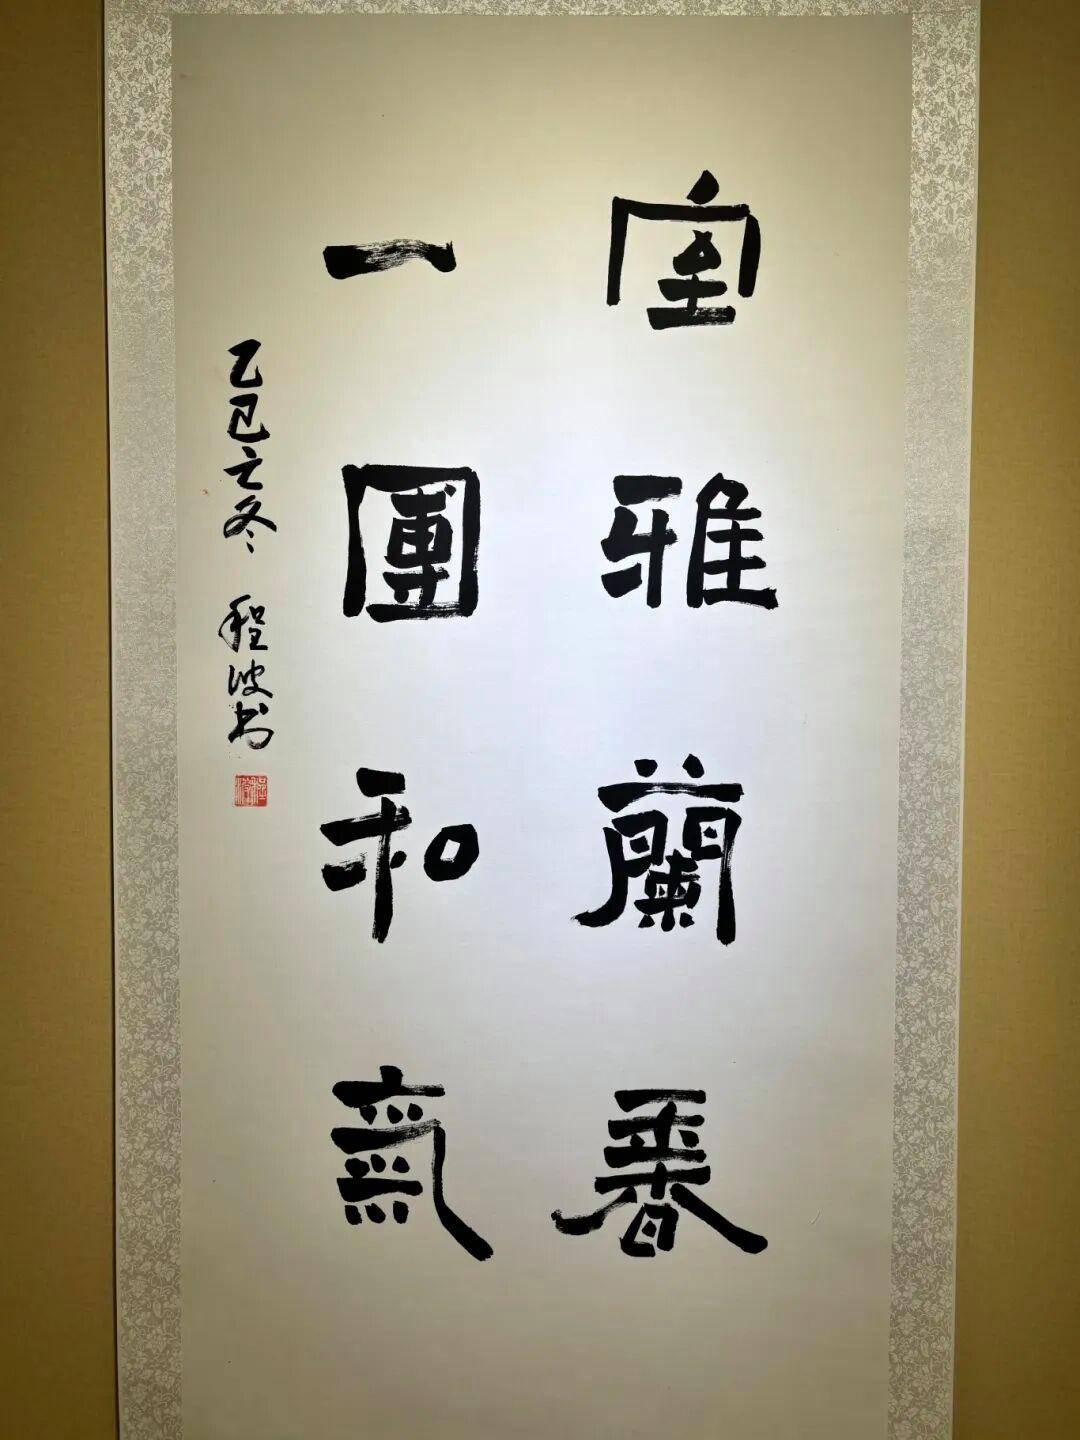 室雅蘭香
一團和氣
乙巳之冬 程波书